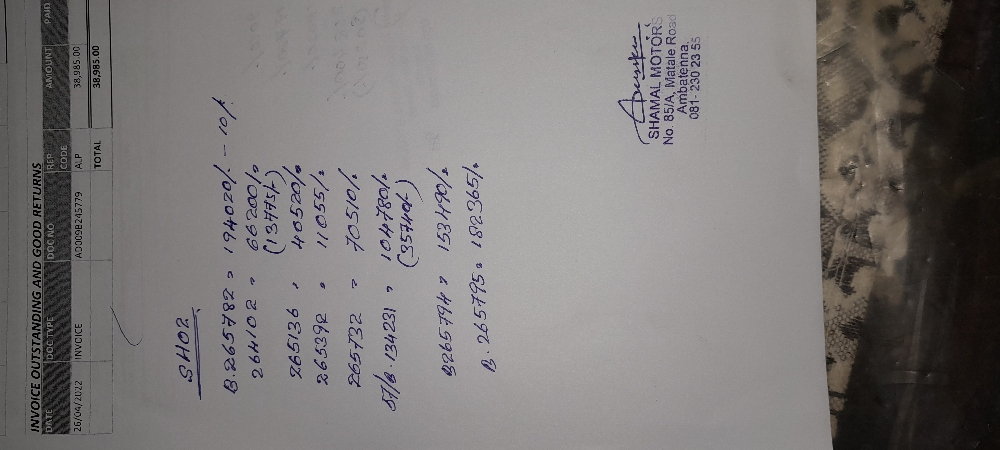 INVOICE OUTSTANDING AND GOOD RETURNS
DATE DOC TYPE DOC NO REP CODE AMOUNT PAID
26/04/2022 INVOICE AD009B245779 ALP 38,985.00
TOTAL 38,985.00
SH02
B.265782 = 194020/. - 10/.
264102 = 66200/.
(13775/-)
265136 = 40520/.
265392 = 11055/.
265732 = 70510/.
ST/B.134231 = 104780/.
(35740/-)
B265794 = 153490/.
B.265795 = 182365/.
SHAMAL MOTORS
No. 85/A, Matale Road
Ambatenna.
081- 230 23 55